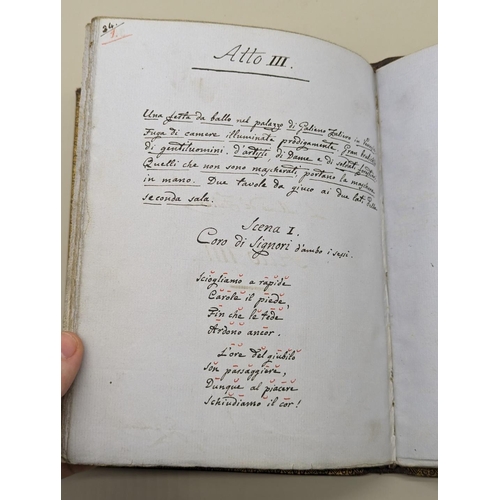 34.
Atto III.
Una festa da ballo nel palazzo di Galieno
Fuga di camere illuminate prodigamente. Gran
di gentiluomini, d'artisti, di Dame e di soldati
Quelli che non sono mascherati, portano la maschera
in mano. Due tavole da giuco ai due lati della
seconda sala.
Scena I.
Coro di Signori d'ambo i sessi.
Sciogliamo a rapide
Carole il piede,
Fin che le tede
Ardono ancor.
L'ore del giubilo
Son passaggiere,
Dunque al piacere
Schiudiamo il cor!